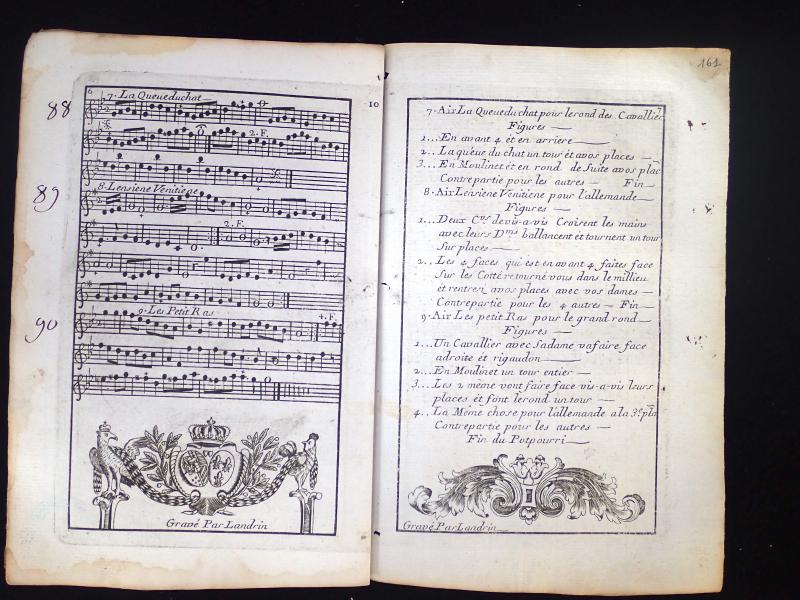 6
7. La Queue du chat
88
2. F.
8. Lensiene Venitiene
89
2. F.
9. Les Petit Ras
4. F.
90
Gravé Par Landrin
10
161
7
7. Air La Queue du chat pour le rond des Cavallier
Figures
1... En avant 4 et en arriere
2... La queue du chat un tour et avos places
3... En Moulinet et en rond de suite avos plac
Contrepartie pour les autres Fin
8. Air Lensiene Venitiene pour l'allemande
Figures
1... Deux C.rs devis-a-vis Croisent les mains
avec leurs D.mes ballancent et tournent un tour
Sur places
2... Les 4 faces qui est en avant 4 faites face
Sur les Cotté retourné vous dans le millieu
et rentres avos places avec vos dames
Contrepartie pour les 4 autres Fin
9. Air Les petit Ras pour le grand rond
Figures
1... Un Cavallier avec Sadame va faire face
adroite et rigaudon
2... En Moulinet un tour entier
3... Les 2 même vont faire face vis-a-vis leurs
places et font le rond un tour
4... La Même chose pour l'allemande a la 3.e pla
Contrepartie pour les autres
Fin du Potpourri
Gravé Par Landrin